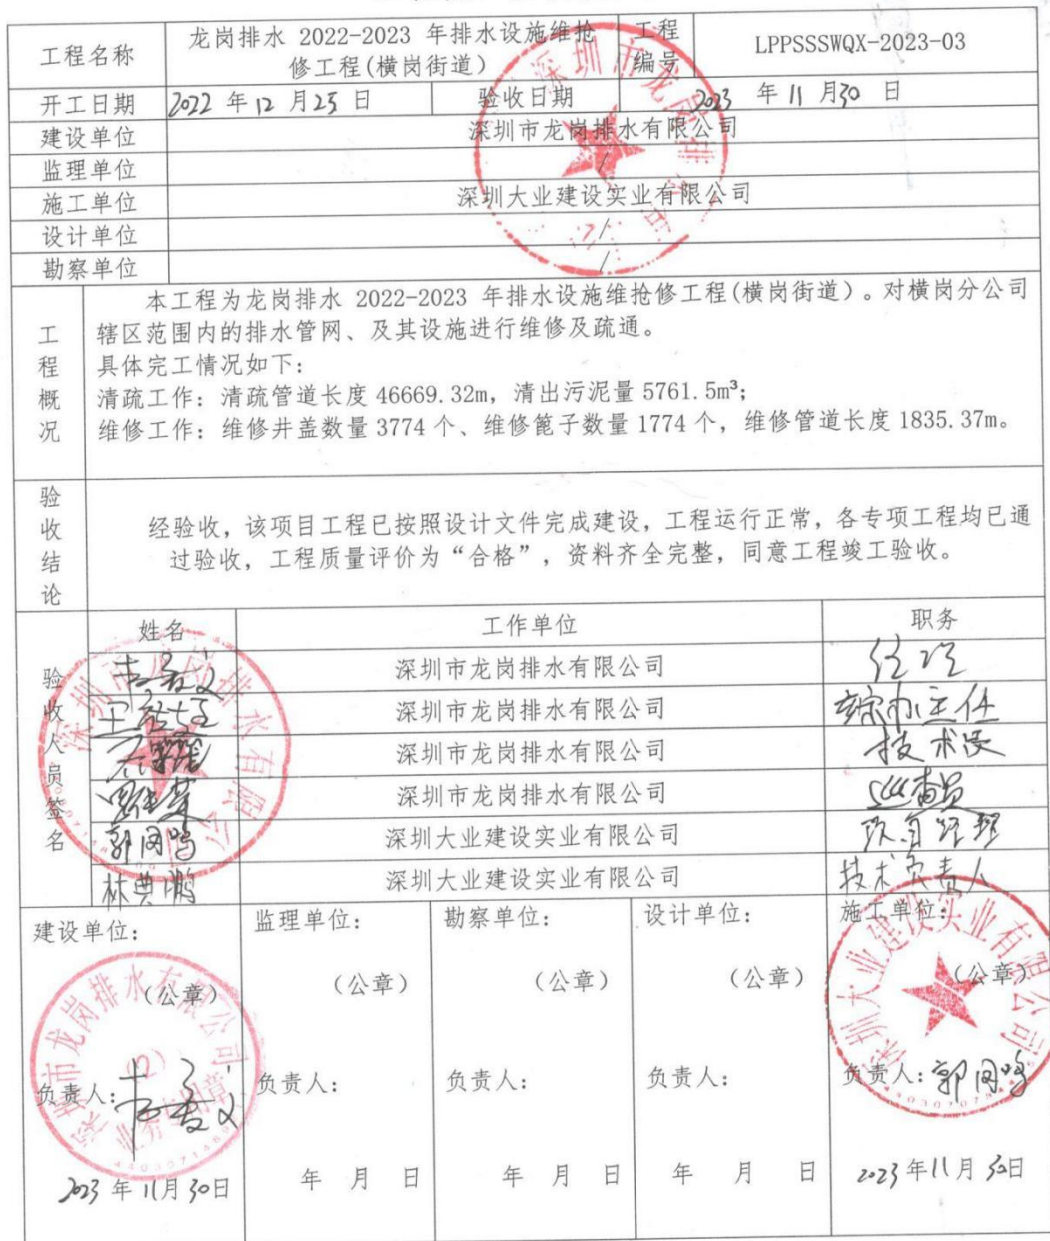 工程名称 龙岗排水 2022-2023 年排水设施维抢修工程(横岗街道) 工程编号 LPPSSSWQX-2023-03
开工日期 2022 年 12 月 25 日 验收日期 2023 年 11 月 30 日
建设单位 深圳市龙岗排水有限公司
监理单位 /
施工单位 深圳大业建设实业有限公司
设计单位 /
勘察单位 /
工程概况
本工程为龙岗排水 2022-2023 年排水设施维抢修工程(横岗街道)。对横岗分公司
辖区范围内的排水管网、及其设施进行维修及疏通。
具体完工情况如下:
清疏工作: 清疏管道长度 46669.32m, 清出污泥量 5761.5m³;
维修工作: 维修井盖数量 3774 个、维修篦子数量 1774 个, 维修管道长度 1835.37m。
验收结论
经验收, 该项目工程已按照设计文件完成建设, 工程运行正常, 各专项工程均已通
过验收, 工程质量评价为“合格”, 资料齐全完整, 同意工程竣工验收。
验收人员签名
姓名 工作单位 职务
深圳市龙岗排水有限公司
深圳市龙岗排水有限公司 综合办主任
深圳市龙岗排水有限公司 技术员
深圳市龙岗排水有限公司 巡查员
郭闵鸣 深圳大业建设实业有限公司 项目经理
林典鹏 深圳大业建设实业有限公司 技术负责人
建设单位: 监理单位: 勘察单位: 设计单位: 施工单位:
(公章) (公章) (公章) (公章) (公章)
负责人: 负责人: 负责人: 负责人: 负责人: 郭闵鸣
2023 年 11 月 30 日 年 月 日 年 月 日 年 月 日 2023 年 11 月 30 日
深圳市龙岗排水有限公司
深圳大业建设实业有限公司